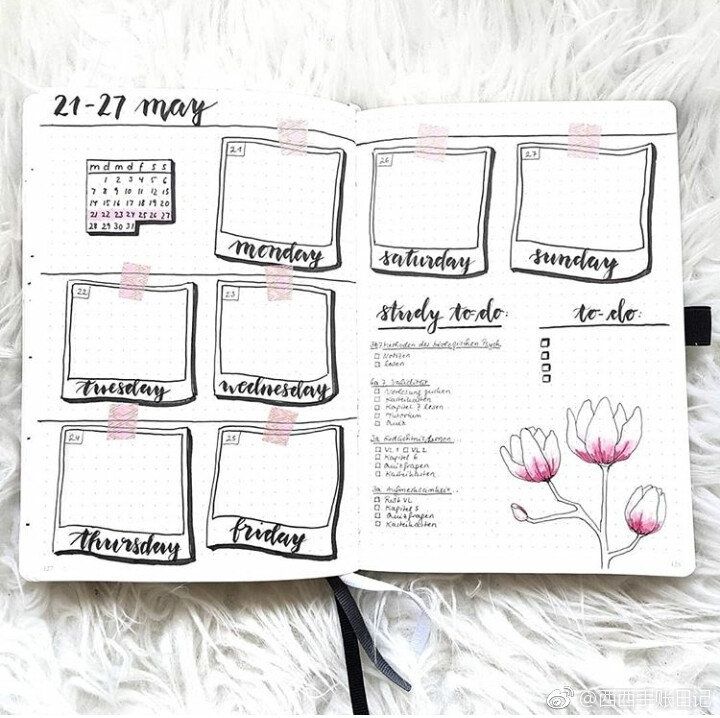 21-27 may
m d m d f s s
1 2 3 4 5 6
7 8 9 10 11 12 13
14 15 16 17 18 19 20
21 22 23 24 25 26 27
28 29 30 31
21
monday
22
tuesday
23
wednesday
24
thursday
25
friday
127
26
saturday
27
sunday
study to-do:
Methoden der biologischen Psych
Notizen
Lesen
Validität
Vorlesung
Karteikarten
Kapitel 7 lesen
Tutorium
Quiz
VL 1 VL 2
Kapitel 6
Quizfragen
Karteikarten
Aufmerksamkeit
Rest VL
Kapitel 5
Quizfragen
Karteikarten
to-do:
@西西手账日记